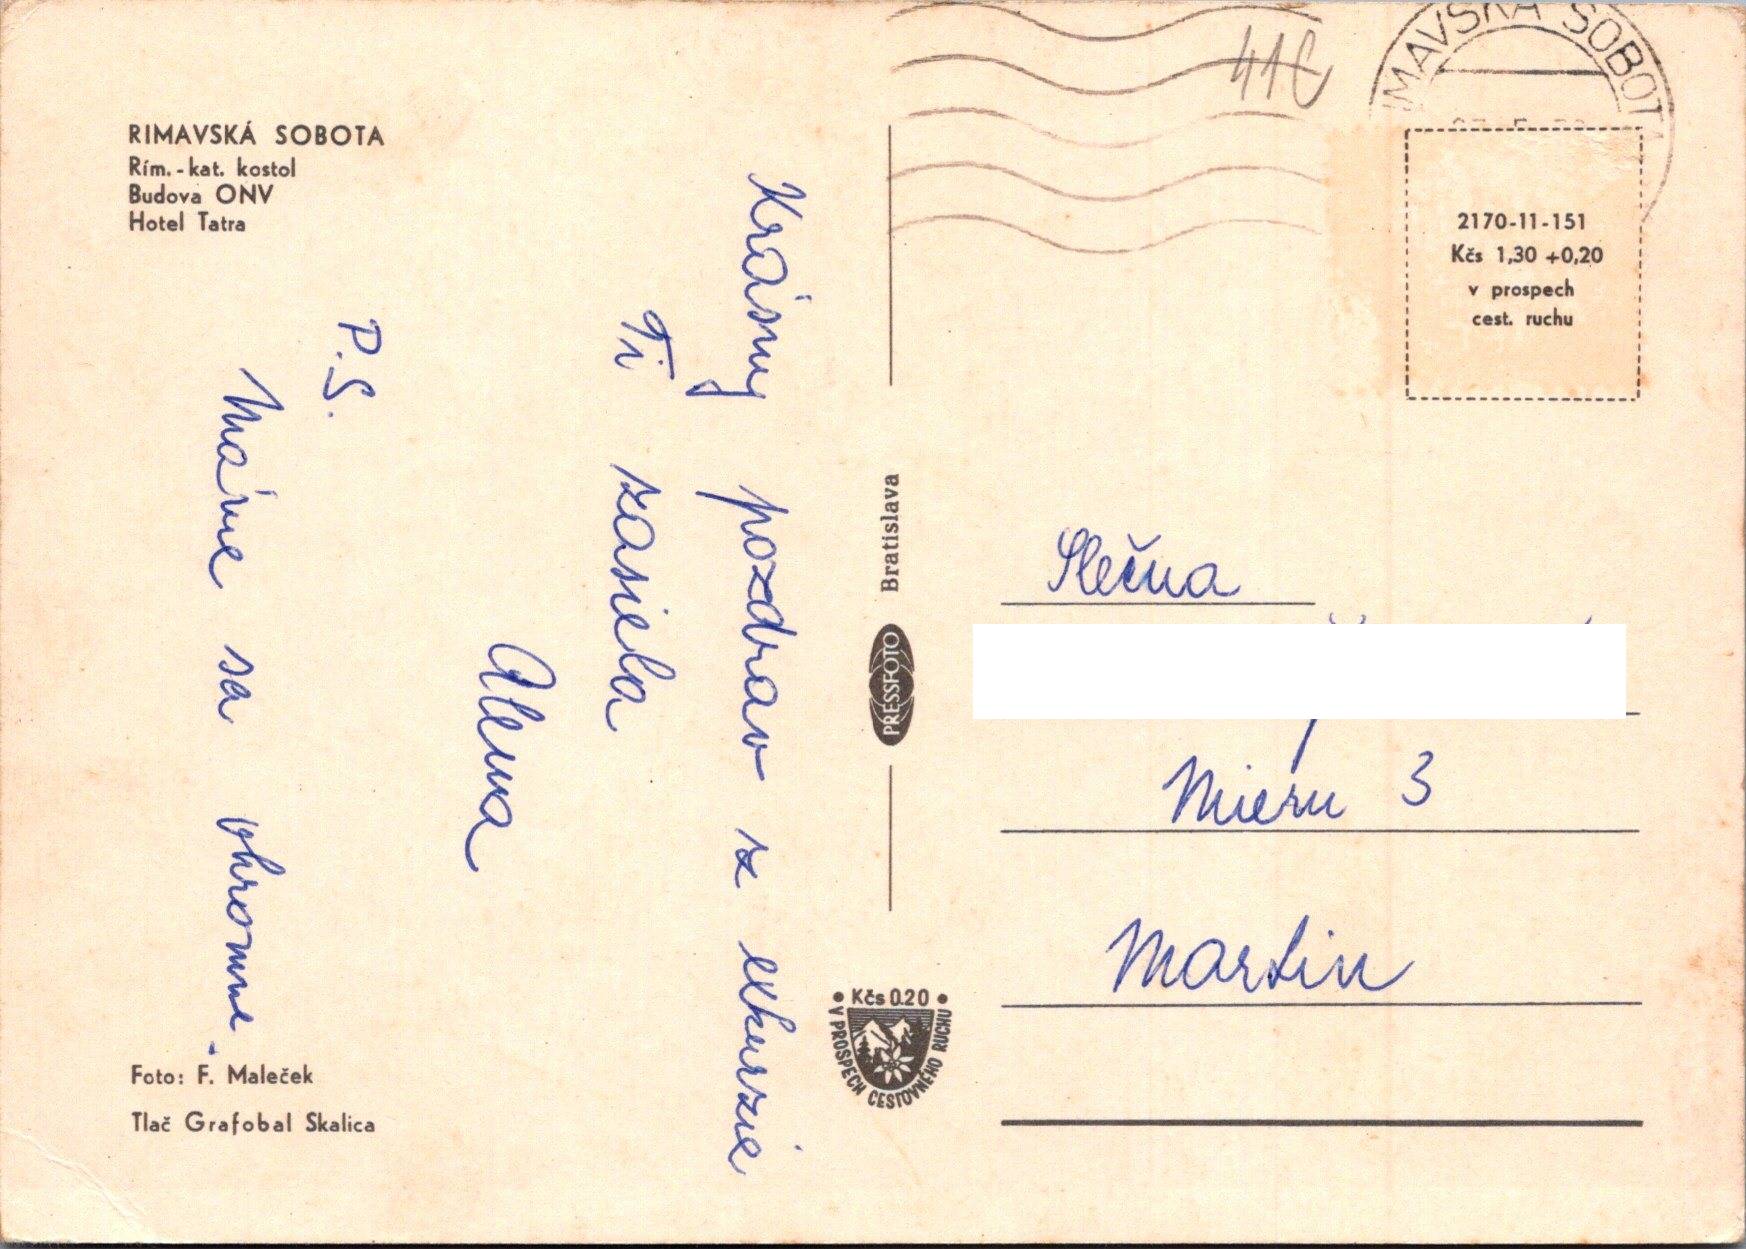 RIMAVSKÁ SOBOTA
Rím.-kat. kostol
Budova ONV
Hotel Tatra
Krásny pozdrav z exkurzie
Ti zasiela
Alena
P.S.
Máme sa ohromne.
Foto: F. Maleček
Tlač Grafobal Skalica
PRESSFOTO Bratislava
• Kčs 0.20 •
V PROSPECH CESTOVNÉHO RUCHU
RIMAVSKÁ SOBOTA
2170-11-151
Kčs 1,30 +0,20
v prospech
cest. ruchu
Slečna
Mieru 3
Martin